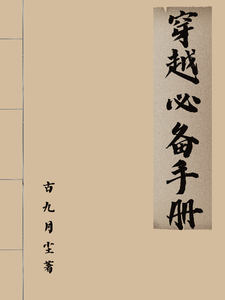 穿越必备手册
古九月尘著